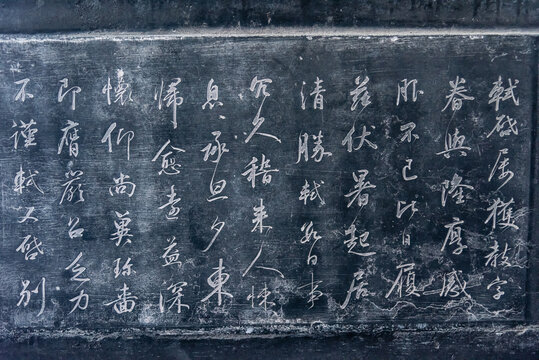 軾啟屢獲教字
眷與隆厚感
服不已比日履
茲伏暑起居
清勝軾數日事
冗久稽來人悚
息承旦夕東
歸愈遠益深
懷仰尚冀珍嗇
即膺嚴召乏力
不謹軾又啟別